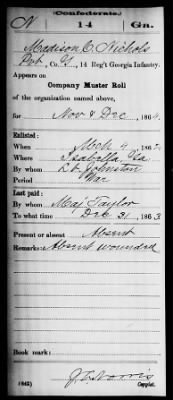 (Confederate.)
N 14 Ga.
Madison C. Nichols
Pvt, Co. G, 14 Reg't Georgia Infantry.
Appears on
Company Muster Roll
of the organization named above,
for Nov & Dec, 1864.
Enlisted:
When Mch 4, 1862
Where Isabella Ga
By whom Lt. Johnston
Period War
Last paid:
By whom Maj Taylor
To what time Dec 31, 1863.
Present or absent Absent
Remarks: Absent wounded
Book mark:
(642)
J. C. Norris
Copyist.